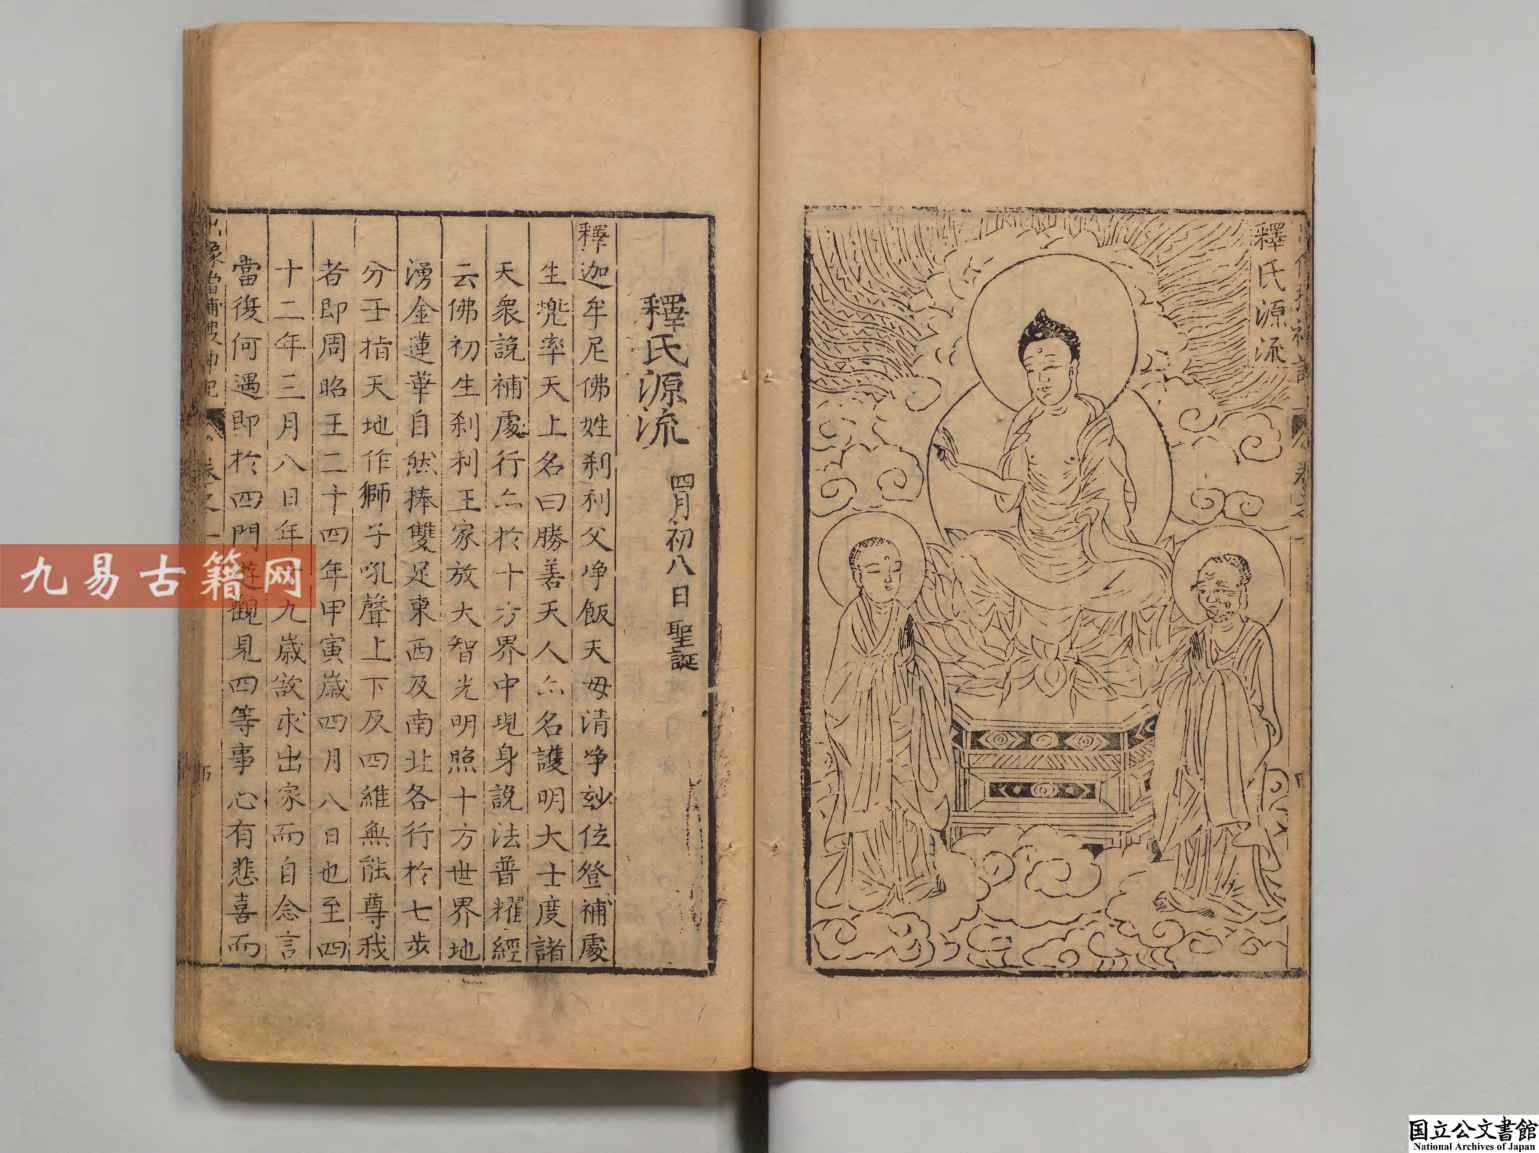 釋氏源流
釋氏源流
四月初八日聖誕
釋迦牟尼佛姓刹利父淨飯天母清淨玅位登補處
生兠率天上名曰勝善天人亦名護明大士度諸
天衆說補處行亦於十方界中現身說法普耀經
云佛初生刹利王家放大智光明照十方世界地
湧金蓮華自然捧雙足東西及南北各行於七步
分手指天地作獅子吼聲上下及四維無能尊我
者即周昭王二十四年甲寅歲四月八日也至四
十二年三月八日年十九歲欲求出家而自念言
當復何遇即於四門遊觀見四等事心有悲喜而
出像增補搜神記 卷之一
九易古籍网
国立公文書館
National Archives of Japan